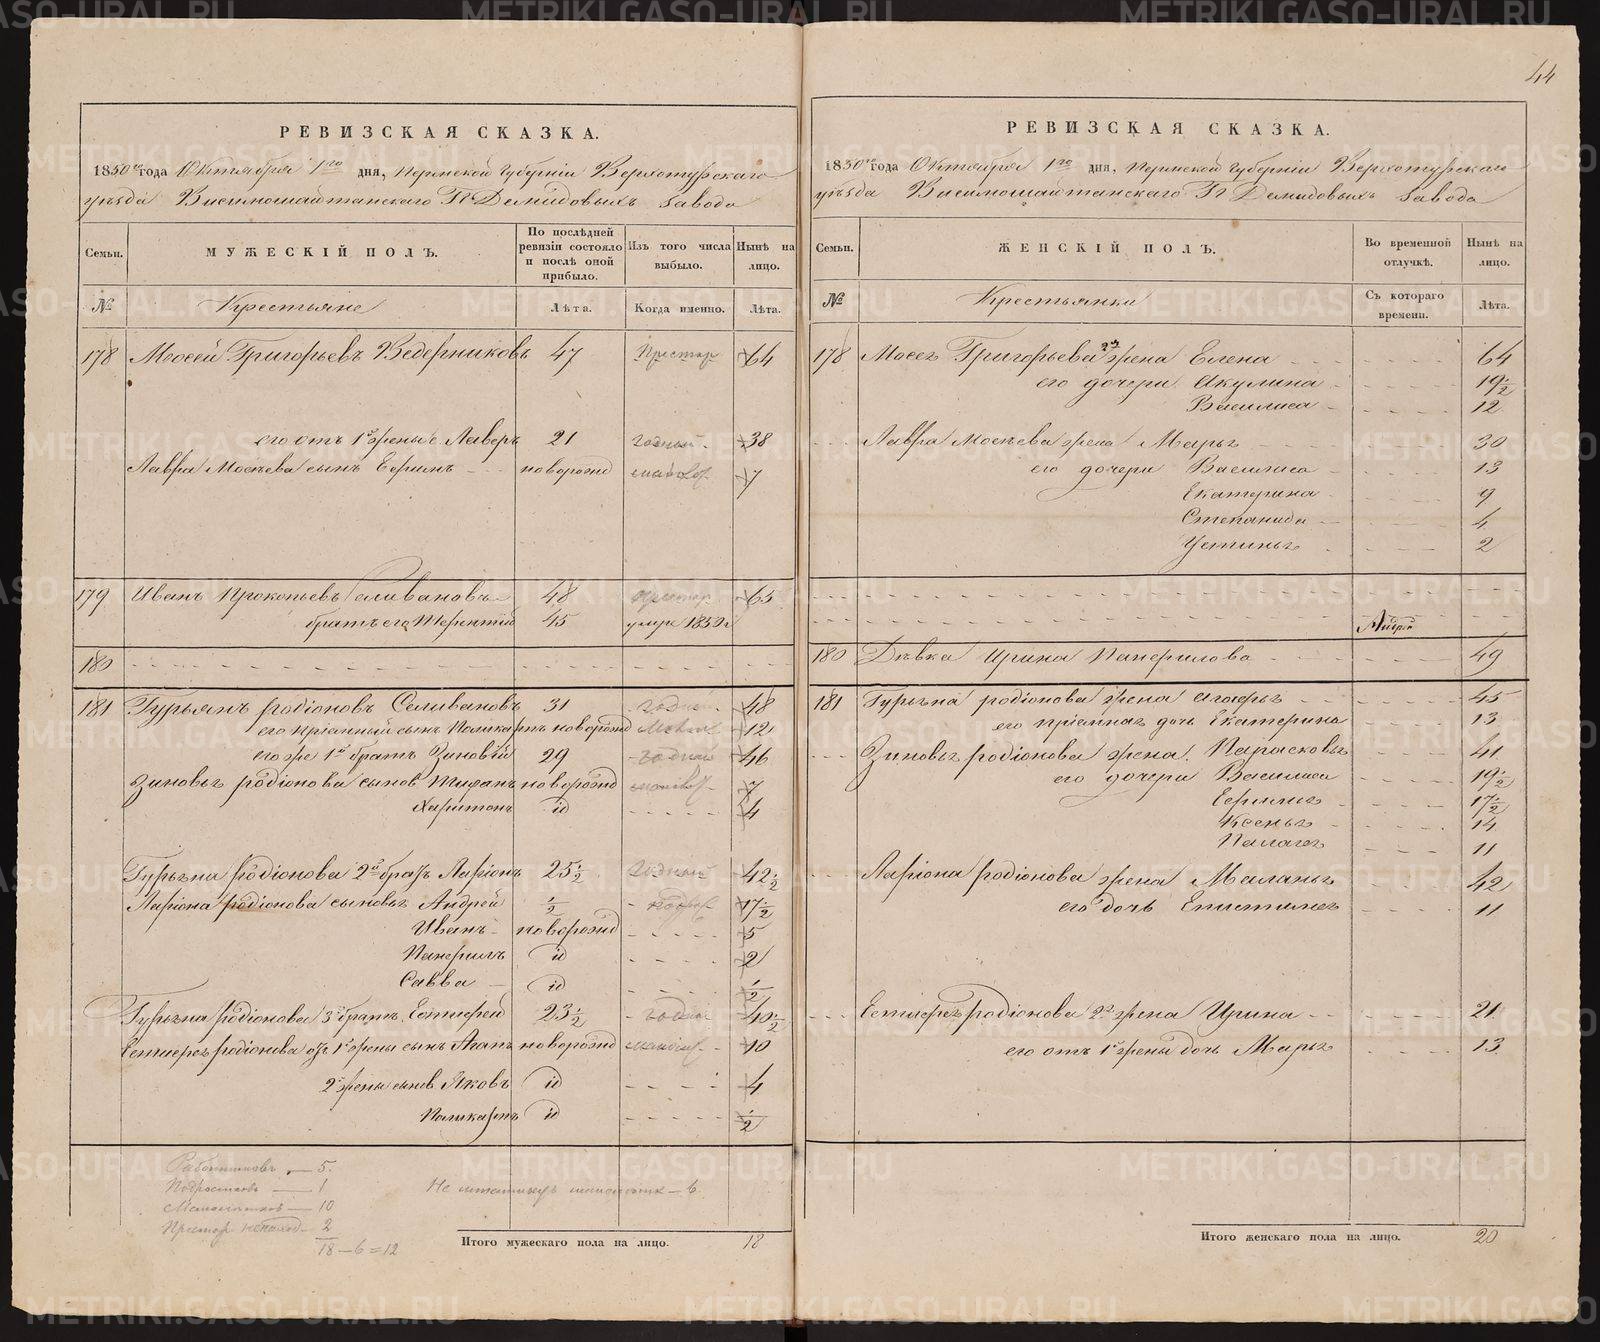 44
РЕВИЗСКАЯ СКАЗКА.
1850го года Октября 1го дня, Пермской Губерніи Верхотурскаго
уѣзда Висимошайтанскаго Гг Демидовыхъ завода
Семьи. МУЖЕСКІЙ ПОЛЪ. По послѣдней ревизіи состояло и послѣ оной прибыло. Изъ того числа выбыло. Нынѣ на лицо.
№ Крестьяне Лѣта. Когда именно. Лѣта.
178 Мосей Григорьевъ Ведерниковъ 47 Престар 64
его отъ 1й жены с. Лавръ 21 годный 38
Лавра Мосѣева сынъ Ефимъ новорожд 7
179 Иванъ Прокопьевъ Селивановъ 48 престар 65
братъ его Терентій 45 умре 1850 г
180
181 Гурьянъ Родіоновъ Селивановъ 31 годной 48
его пріемный сынъ Поликарпъ новорожд 12
его же 1й братъ Зиновій 29 годной 46
Зиновья Родіонова сынов Тифанъ новорожд 7
Харитонъ id 4
Гурьяна Родіонова 2й братъ Ларіонъ 25 1/2 годной 42 1/2
Ларіона Родіонова сыновья Андрей 1/2 17 1/2
Иванъ новорожд 5
Панфилъ id 2
Савва id 1/2
Гурьяна Родіонова 3й братъ Естифей 23 1/2 годной 40 1/2
Естифея Родіонова отъ 1й жены сынъ Агапъ новорожд 10
2й жены сынов. Яковъ id 4
Поликарпъ id 1/2
Работниковъ — 5.
Подростковъ — 1
Малолѣтковъ — 10
Престар — 2
18 — 6 = 12
6
Итого мужескаго пола на лицо. 18
РЕВИЗСКАЯ СКАЗКА.
1850го года Октября 1го дня, Пермской Губерніи Верхотурскаго
уѣзда Висимошайтанскаго Гг Демидовыхъ завода
Семьи. ЖЕНСКІЙ ПОЛЪ. Во временной отлучкѣ. Нынѣ на лицо.
№ Крестьянки Съ котораго времени. Лѣта.
178 Мосея Григорьева 2я жена Елена 64
его дочери Акулина 19 1/2
Василиса 12
Лавра Мосѣева жена Марья 30
его дочери Василиса 13
Екатерина 9
Степанида 4
Устинья 2
180 Дѣвка Ирина Панфилова 49
181 Гурьяна Родіонова жена Агафья 45
его пріемная дочь Екатерина 13
Зиновья Родіонова жена Парасковья 41
его дочери Василиса 19 1/2
Ефимья 17 1/2
Ксенья 14
Палагея 11
Ларіона Родіонова жена Маланья 42
его дочь Епистимея 11
Естифея Родіонова 2я жена Ирина 21
его отъ 1й жены дочь Марья 13
Итого женскаго пола на лицо. 20
METRIKI.GASO-URAL.RU